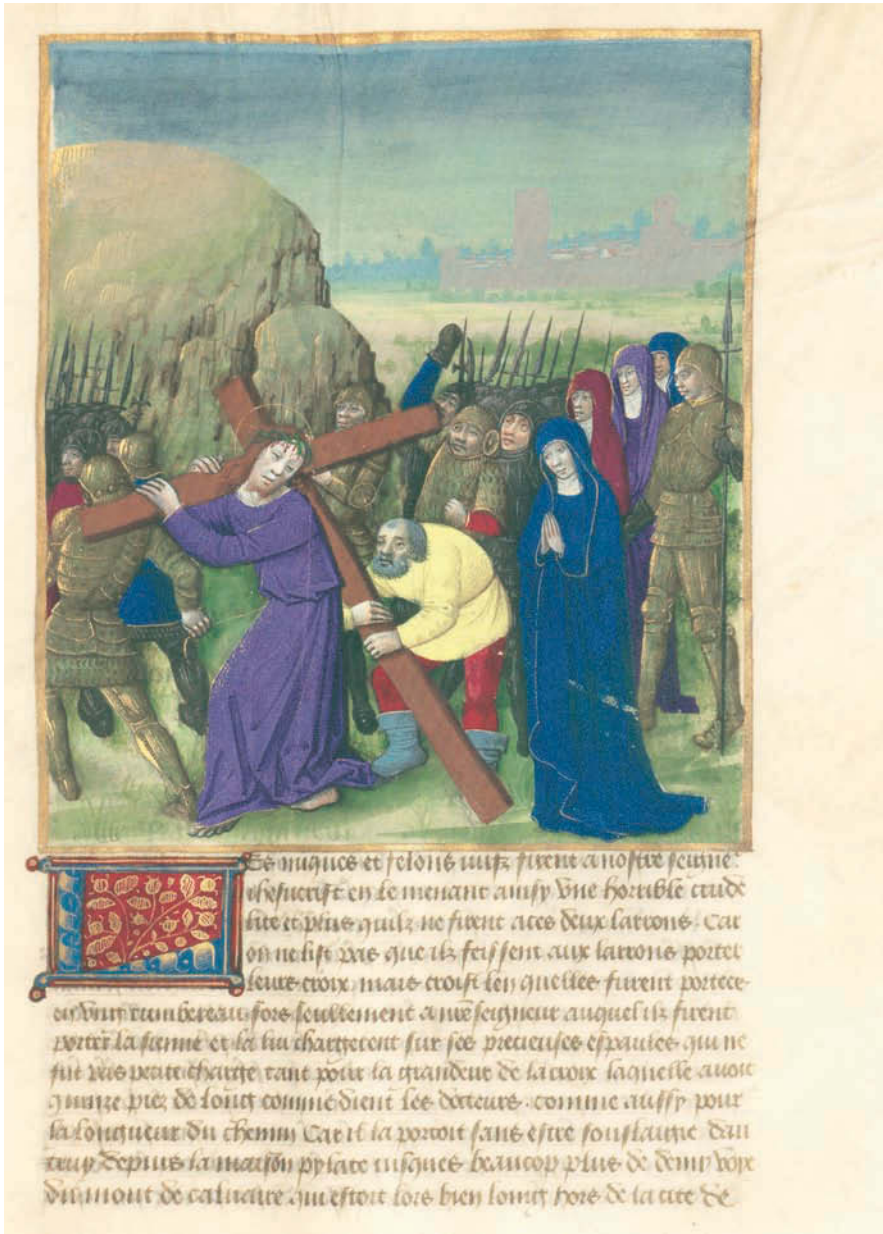 Les iniques et felons iuifz firent a nostre seigne
ihesucrist en le menant ainsy vne horrible crude
lite et plus quilz ne firent aces deux larrons. Car
on ne list pas que ilz feissent aux larrons porter
leurs croix mais croist len quelles furent portees
en vng tumbereau fors seullement a nre seigneur auquel ilz firent
porter la sienne et la lui chargerent sur ses precieuses espaules qui ne
fut pas petite charge tant pour la grandeur de lacroix laquelle auoit
quinze piez de long comme dient les docteurs. comme aussy pour
la longueur du chemin Car il la portoit sans estre soulaigie dau
truy depuis la maison pylate iusques beaucop plus de demy voye
du mont de caluaire qui estoit lors bien loing hors de la cite de